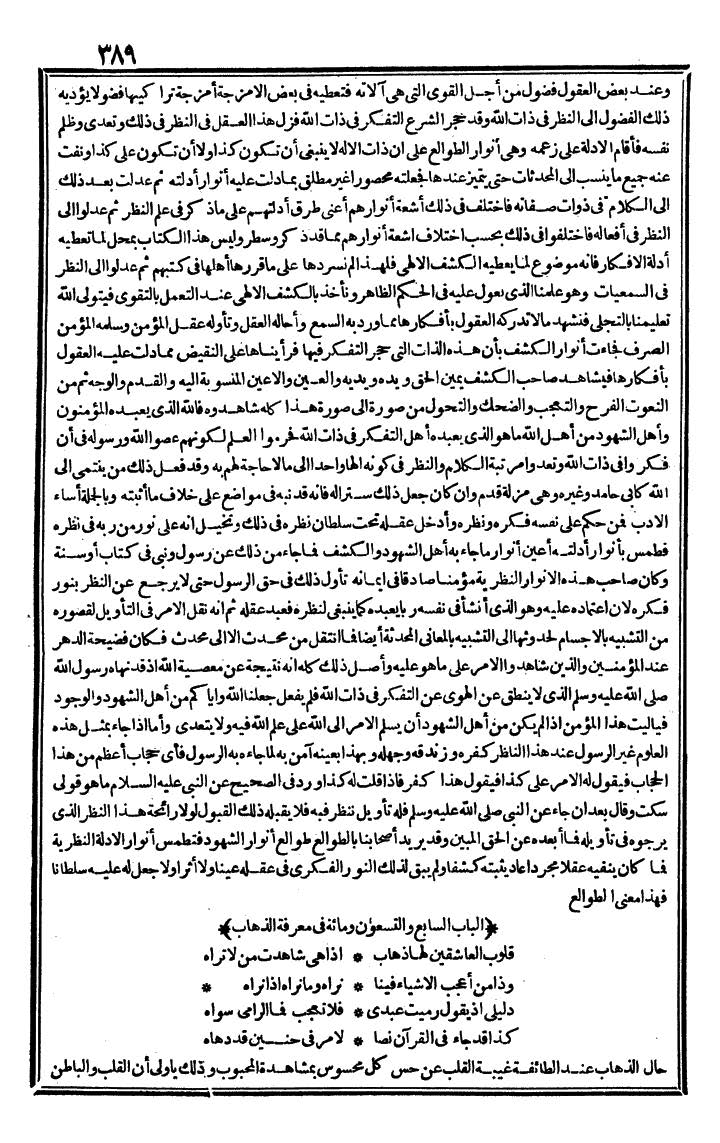 ٣٨٩
وعند بعض العقول فضول من أجل القوى التى هى آلاته فتعطيه فى بعض الامزجة أمزجة تراكيبها فضولا يؤديه
ذلك الفضول الى النظر فى ذات الله وقد حجر الشرع التفكر فى ذات الله فزل هذا العقل فى النظر فى ذلك وتعدى وظلم
نفسه فأقام الادلة على زعمه وهى أنوار الطوالع على ان ذات الاله لا ينبغى أن تكون كذا ولا أن تكون على كذا ونفت
عنه جميع ما ينسب الى المحدثات حتى يتميز عندها فجعلته محصورا غير مطلق بما دلت عليه أنوار أدلته ثم عدلت بعد ذلك
الى الكلام فى ذوات صفاته فاختلف فى ذلك أشعة أنوارهم أعنى طرق أدلتهم على ما ذكر فى علم النظر ثم عدلوا الى
النظر فى أفعاله فاختلفوا فى ذلك بحسب اختلاف اشعة أنوارهم بما قد ذكر وسطر وليس هذا الكتاب بمحل لما تعطيه
أدلة الافكار فانه موضوع لما يعطيه الكشف الالهى فلهذا لم نسردها على ما قررها أهلها فى كتبهم ثم عدلوا الى النظر
فى السمعيات وهو علمنا الذى يعول عليه فى الحكم الظاهر ونأخذ بالكشف الالهى عند التعمل بالتقوى فيتولى الله
تعليمنا بالتجلى فنشهد ما لا تدركه العقول بأفكارها مما ورد به السمع وأحاله العقل وتأوله عقل المؤمن وسلمه المؤمن
الصرف فجاءت أنوار الكشف بأن هذه الذات التى حجر التفكر فيها فرأيناها على النقيض مما دلت عليه العقول
بأفكارها فيشاهد صاحب الكشف يمين الحق ويده ويديه والعين والاعين المنسوبة اليه والقدم والوجه ثم من
النعوت الفرح والتعجب والضحك والتحول من صورة الى صورة هذا كله شاهدوه فالله الذى يعبده المؤمنون
وأهل الشهود من أهل الله ما هو الذى يعبده أهل التفكر فى ذات الله فحرموا العلم لكونهم عصوا الله ورسوله فى أن
فكروا فى ذات الله وتعدوا مرتبة الكلام والنظر فى كونه الها واحدا الى ما لا حاجة لهم به وقد فعل ذلك من ينتمى الى
الله كابى حامد وغيره وهى مزلة قدم وان كان جعل ذلك سترا له فانه قد نبه فى مواضع على خلاف ما أثبته وبالجملة أساء
الادب فمن حكم على نفسه فكره ونظره وأدخل عقله تحت سلطان نظره فى ذلك وتخيل انه على نور من ربه فى نظره
فطمس بأنوار أدلته أعين أنوار ما جاء به أهل الشهود والكشف فما جاء من ذلك عن رسول ونبى فى كتاب أوسنة
وكان صاحب هذه الانوار النظرية مؤمنا صادقا فى ايمانه تأول ذلك فى حق الرسول حتى لا يرجع عن النظر بنور
فكره لان اعتماده عليه وهو الذى أنشأ فى نفسه ربا يعبده كما ينبغى لنظره فعبد عقله ثم انه نقل الامر فى التأويل لقصوره
من التشبيه بالاجسام لحدوثها الى التشبيه بالمعانى المحدثة أيضا فما انتقل من محدث الا الى محدث فكان فضيحة الدهر
عند المؤمنين والذين شاهدوا الامر على ما هو عليه وأصل ذلك كله انه نتيجة عن معصية الله اذ قد نهاه رسول الله
صلى الله عليه وسلم الذى لا ينطق عن الهوى عن التفكر فى ذات الله فلم يفعل جعلنا الله واياكم من أهل الشهود والوجود
فياليت هذا المؤمن اذا لم يكن من أهل الشهود أن يسلم الامر الى الله على علم الله فيه ولا يتعدى وأما اذا جاء بمثل هذه
العلوم غير الرسول عند هذا الناظر كفره وزندقه وجهله وبهذا بعينه آمن به لما جاءه به الرسول فأى حجاب أعظم من هذا
الحجاب فيقول له الامر على كذا فيقول هذا كفر فاذا قلت له كذا ورد فى الصحيح عن النبى عليه السلام ما هو قولى
سكت وقال بعد ان جاء عن النبى صلى الله عليه وسلم فله تأويل ننظر فيه فلا يقبله ذلك القبول لولا رائحة هذا النظر الذى
يرجوه فى تأويله فما أبعده عن الحق المبين وقد يريد أصحابنا بالطوالع طوالع أنوار الشهود فتطمس أنوار الادلة النظرية
فما كان ينفيه عقلا مجردا عاد يثبته كشفا ولم يبق لذلك النور الفكرى فى عقله عينا ولا أثرا ولا جعل له عليه سلطانا
فهذا معنى الطوالع
﴿الباب السابع والتسعون ومائة فى معرفة الذهاب﴾
قلوب العاشقين لها ذهاب * اذا هى شاهدت من لا تراه
وذا من أعجب الاشياء فينا * نراه وما نراه اذا نراه *
دليلى اذ يقول رميت عبدى * فلا تعجب فما الرامى سواه
كذا قد جاء فى القرآن نصا * لامر فى حنين قد دهاه
حال الذهاب عند الطائفة غيبة القلب عن حس كل محسوس بمشاهدة المحبوب وذلك ياولى أن القلب والباطن